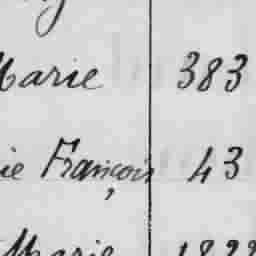 Marie 383
ie François 43
Marie